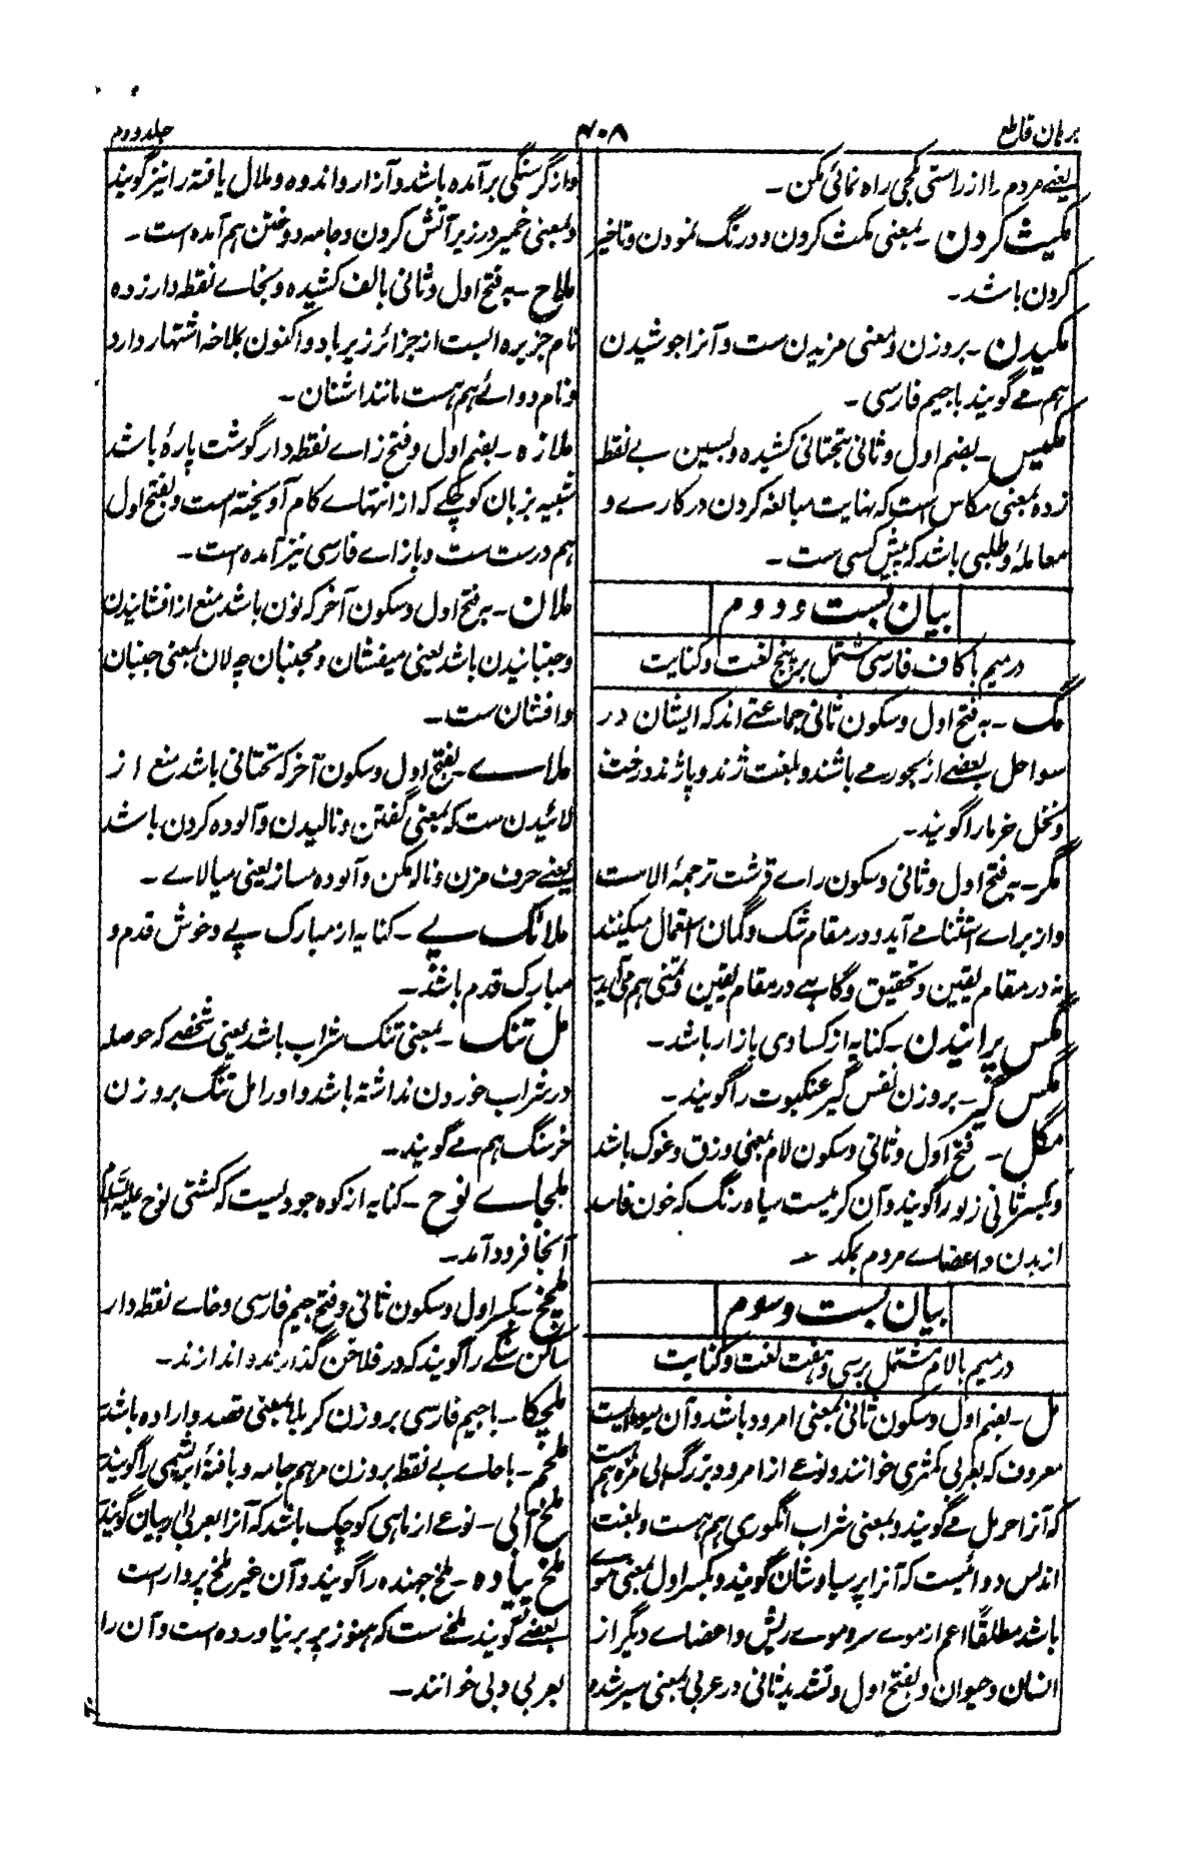 برهان قاطع
۴۰۸
جلد دوم
یعنے مردم را از راستی کجی راه نمائی مکن ۔
مکیث کردن ۔ بمعنی مکث کردن و درنگ نمودن و تاخیر
کردن باشد ۔
مکیدن ۔ بروزن و معنی مزیدن ست و آنرا جوشیدن
هم مے گویند با جیم فارسی ۔
مکیس ۔ بضم اول و ثانی بتحتانی کشیده و بسین بے نقط
زده بمعنی مکاس است که نهایت مبالغه کردن در کارے و
معاملۀ و طلبی باشد که پیش کسی ست ۔
بیان بست و دوم
در میم با کاف فارسی مشتمل بر پنج لغت و کنایت
مگ ۔ به فتح اول و سکون ثانی جماعتے اند که ایشان در
سواحل بعضے از بحور مے باشند و بلغت ژند و پاژند درخت
و نخل خرما را گویند ۔
مگر ۔ به فتح اول و ثانی و سکون راے قرشت ترجمۀ الاست
و از براے استثنا مے آید و در مقام شک و گمان استعمال میکنند
نه در مقام یقین و تحقیق و گاہے در مقام یقین و تمنی هم می آید
مگس پرانیدن ۔ کنایه از کسادی بازار باشد ۔
مگس گیر ۔ بروزن نفس گیر عنکبوت را گویند ۔
مگل ۔ فتح اول و ثانی و سکون لام بمعنی وزق و غوک باشد
و بکسر ثانی زلو را گویند و آن کرمیست سیاه رنگ که خون فاسد
از بدن و اعضاے مردم بمکد ۔
بیان بست و سوم
در میم بالام مشتمل بر سی و هفت لغت و کنایت
مل ۔ بضم اول و سکون ثانی بمعنی امرود باشد و آن میوه ایست
معروف که بعربی کمثری خوانند و نوعے از امرود بزرگ بی مزه هم هست
که آنرا حرمل مے گویند و بمعنی شراب انگوری هم هست و بلغت
اندلس دوائیست که آنرا پر سیاوشان گویند و بکسر اول بمعنی موے
باشد مطلقاً اعم از موے سر و موے ریش و اعضاے دیگر از
انسان و حیوان و بفتح اول و تشدید ثانی در عربی بمعنی سیر شده
و از گرسنگی برآمده باشد و آزار و اندوه و ملال یافته را نیز گویند
و بمعنی خمیر در زیر آتش کردن و جامه دوختن هم آمده است ۔
ملاخ ۔ به فتح اول و ثانی بالف کشیده و بخاے نقطه دار زده
نام جزیره ایست از جزائر زیر باد و اکنون بملاخه اشتهار دارد
و نام دوائے هم هست مانند اشنان ۔
ملازه ۔ بضم اول و فتح زاے نقطه دار گوشت پارۀ باشد
شبیه بزبان کوچکے که از انتهاے کام آویخته است و بفتح اول
هم درست ست و بازاے فارسی نیز آمده است ۔
ملان ۔ به فتح اول و سکون آخر که نون باشد منع از افشانیدن
و جنبانیدن باشد یعنی میفشان و مجنبان چه لان بمعنی جنبان
و افشان ست ۔
ملاے ۔ بفتح اول و سکون آخر که تحتانی باشد منع از
لائیدن ست که بمعنی گفتن و نالیدن و آلوده کردن باشد
یعنے حرف مزن و ناله مکن و آلوده مساز یعنی میالاے ۔
ملائک پے ۔ کنایه از مبارک پے و خوش قدم و
مبارک قدم باشد ۔
مل تنک ۔ بمعنی تنک شراب باشد یعنی شخصے که حوصله
در شراب خوردن نداشته باشد و او را مل تنگ بروزن
خرسنگ هم مے گویند ۔
ملجاے نوح ۔ کنایه از کوه جودیست که کشتی نوح علیه السلام
آنجا فرود آمد ۔
ملخج ۔ بکسر اول و سکون ثانی و فتح جیم فارسی و خاے نقطه دار
ساکن سنگے را گویند که در فلاخن گذارند و اندازند ۔
ملچکا ۔ با جیم فارسی بروزن کربلا بمعنی قصد و اراده باشد
ملحم ۔ با حاے بے نقط بروزن مرهم جامه و بافتۀ ابریشمی را گویند
ملخ آبی ۔ نوعے از ماهی کوچک باشد که آنرا بعربی اربیان گویند
ملخ پیاده ۔ ملخ جهنده را گویند و آن غیر ملخ پردار است
بعضے گویند ملخے ست که هنوز پر بر نیاورده است و آن را
بعربی دبی خوانند ۔